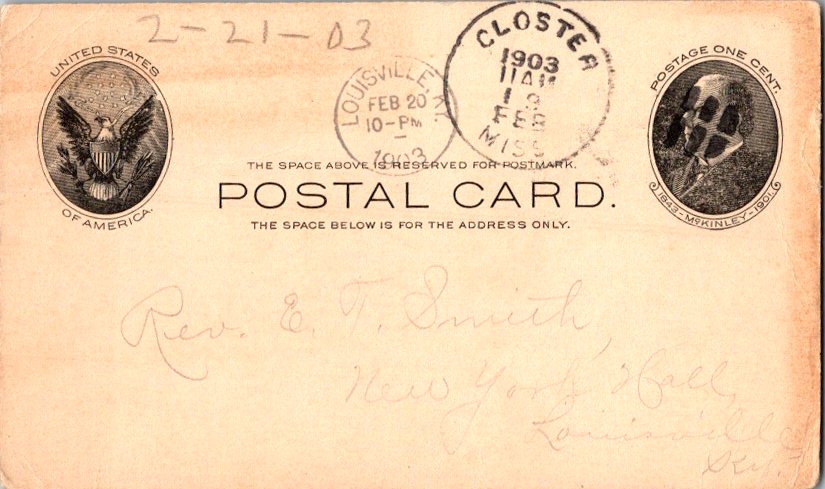 2-21-03
UNITED STATES
OF AMERICA.
LOUISVILLE, KY.
FEB 20
10-PM
1903
CLOSTER
1903
11AM
FEB
MISS
POSTAGE ONE CENT.
1843-McKINLEY-1901.
THE SPACE ABOVE IS RESERVED FOR POSTMARK.
POSTAL CARD.
THE SPACE BELOW IS FOR THE ADDRESS ONLY.
Rev. E. T. Smith,
New York Hall,
Louisville
Ky.